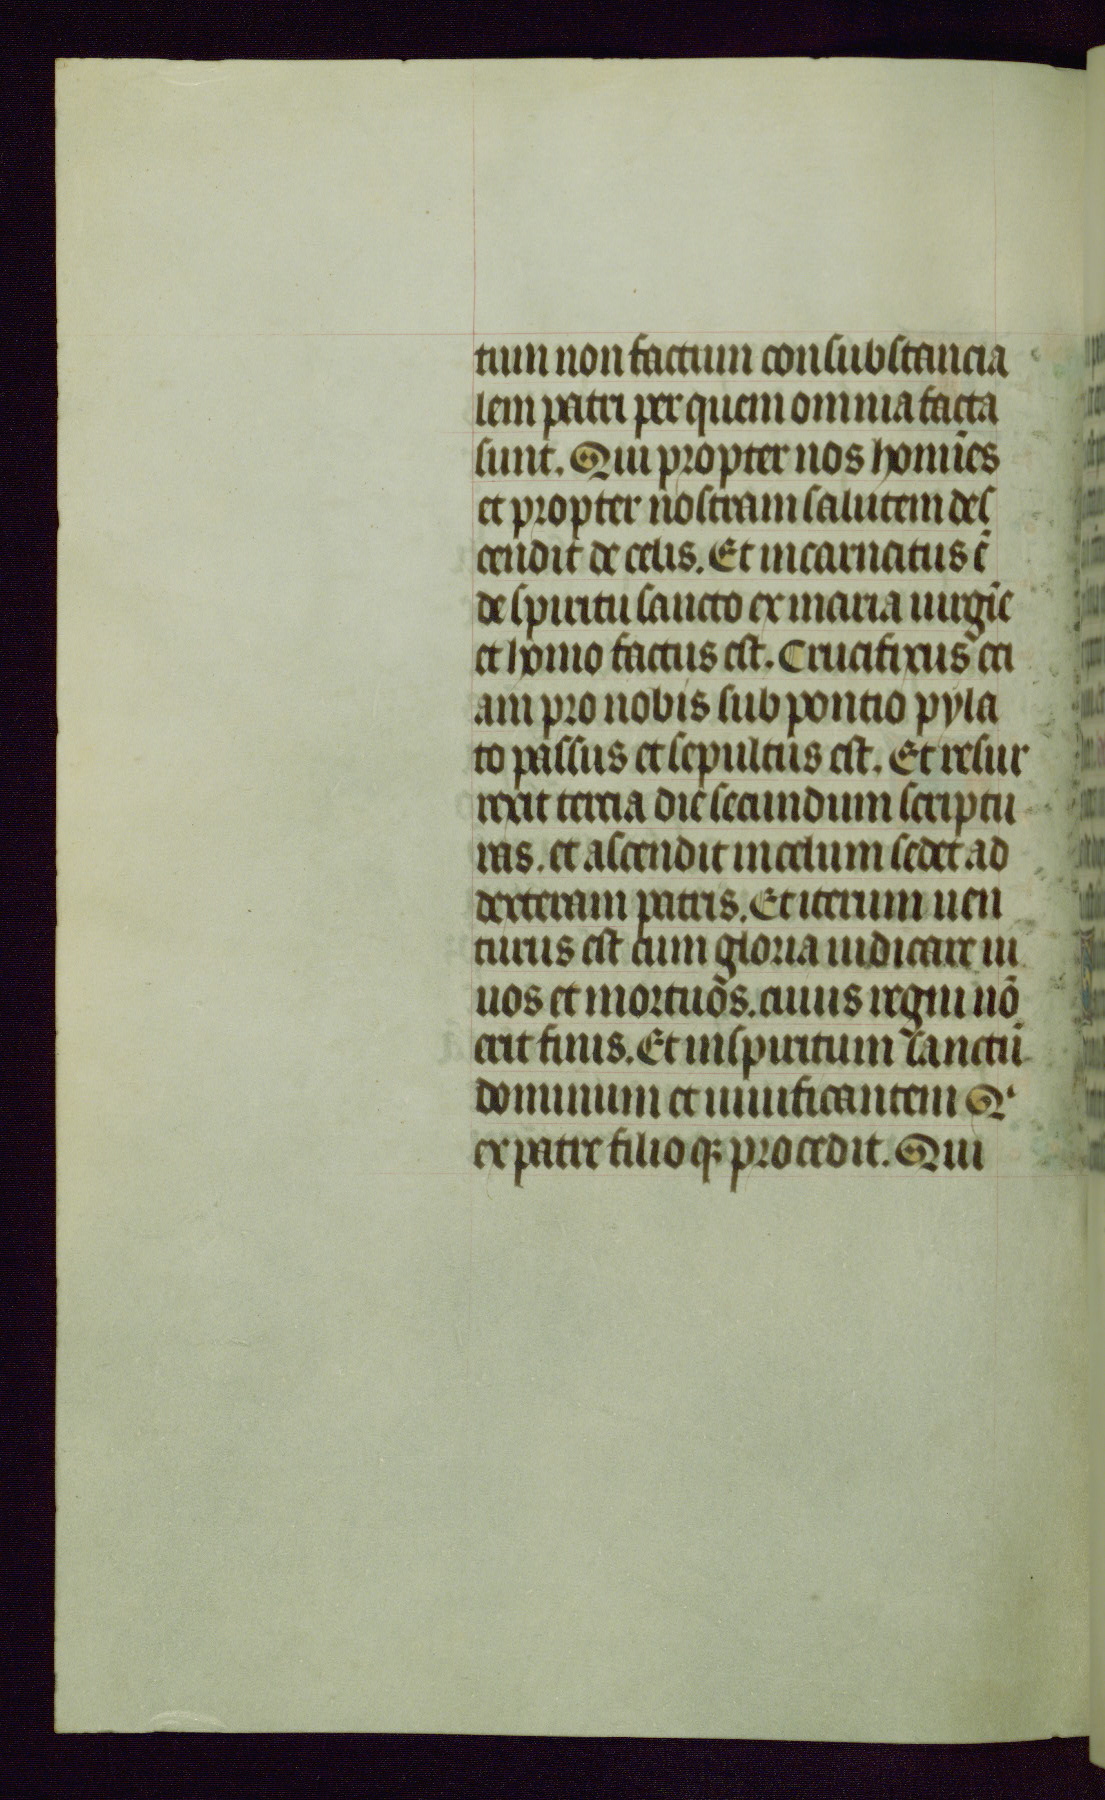 tum non factum consubstancia
lem patri per quem omnia facta
sunt. Qui propter nos homīes
et propter nostram salutem des
cendit de celis. Et incarnatus ē
de spiritu sancto ex maria uirgīe
et homo factus est. Crucifixus eci
am pro nobis sub poncio pyla
to passus et sepultus est. Et resur
rexit tercia die secundum scriptu
ras. et ascendit in celum sedet ad
dexteram patris. Et iterum uen
turus est cum gloria iudicare ui
uos et mortuos. cuius regni nō
erit finis. Et in spiritum sanctū
dominum et uiuificantem Qⁱ
ex patre filioqꝫ procedit. Qui